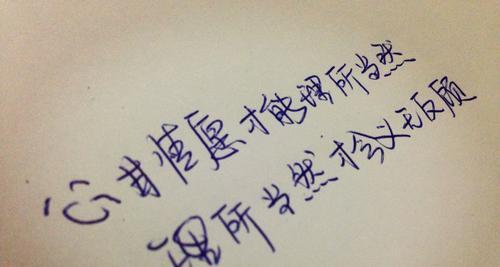 心甘情愿才能理所当然
理所当然才会义无反顾